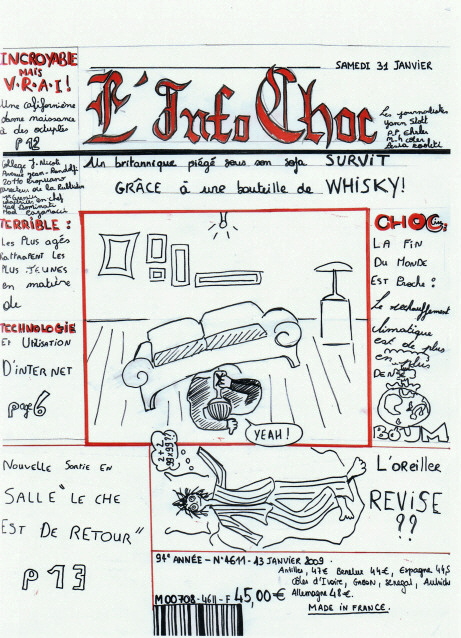 INCROYABLE
MAIS
V.R.A.I!
Une californienne
donne naissance
à des octuplés
p 12
SAMEDI 31 JANVIER
L'Info Choc
Les journalistes
Collège J. Nicoli
Un britannique piégé sous son sofa SURVIT
GRÂCE à une bouteille de WHISKY!
TERRIBLE:
Les Plus agés
Rattrapent les
Plus Jeunes
en matière
de
TECHNOLOGIE
et Utilisation
D'INTERNET
page 6
YEAH!
CHOC
LA FIN
DU MONDE
EST Proche:
Le réchauffement
climatique
est de plus
en plus
DENSE
BOUM
Nouvelle Sortie en
SALLE "LE CHE
EST DE RETOUR"
p 13
2+2
99x99??
L'OREILLER
REVISE
??
94e ANNÉE - N°4611 - 13 JANVIER 2009
Antilles, 47€ Benelux 44€, Espagne 44,5
Côtes d'Ivoire, GABON, Senegal, Autriche
Allemagne 48€.
M 00708 - 4611 - F 45,00€
MADE IN FRANCE.